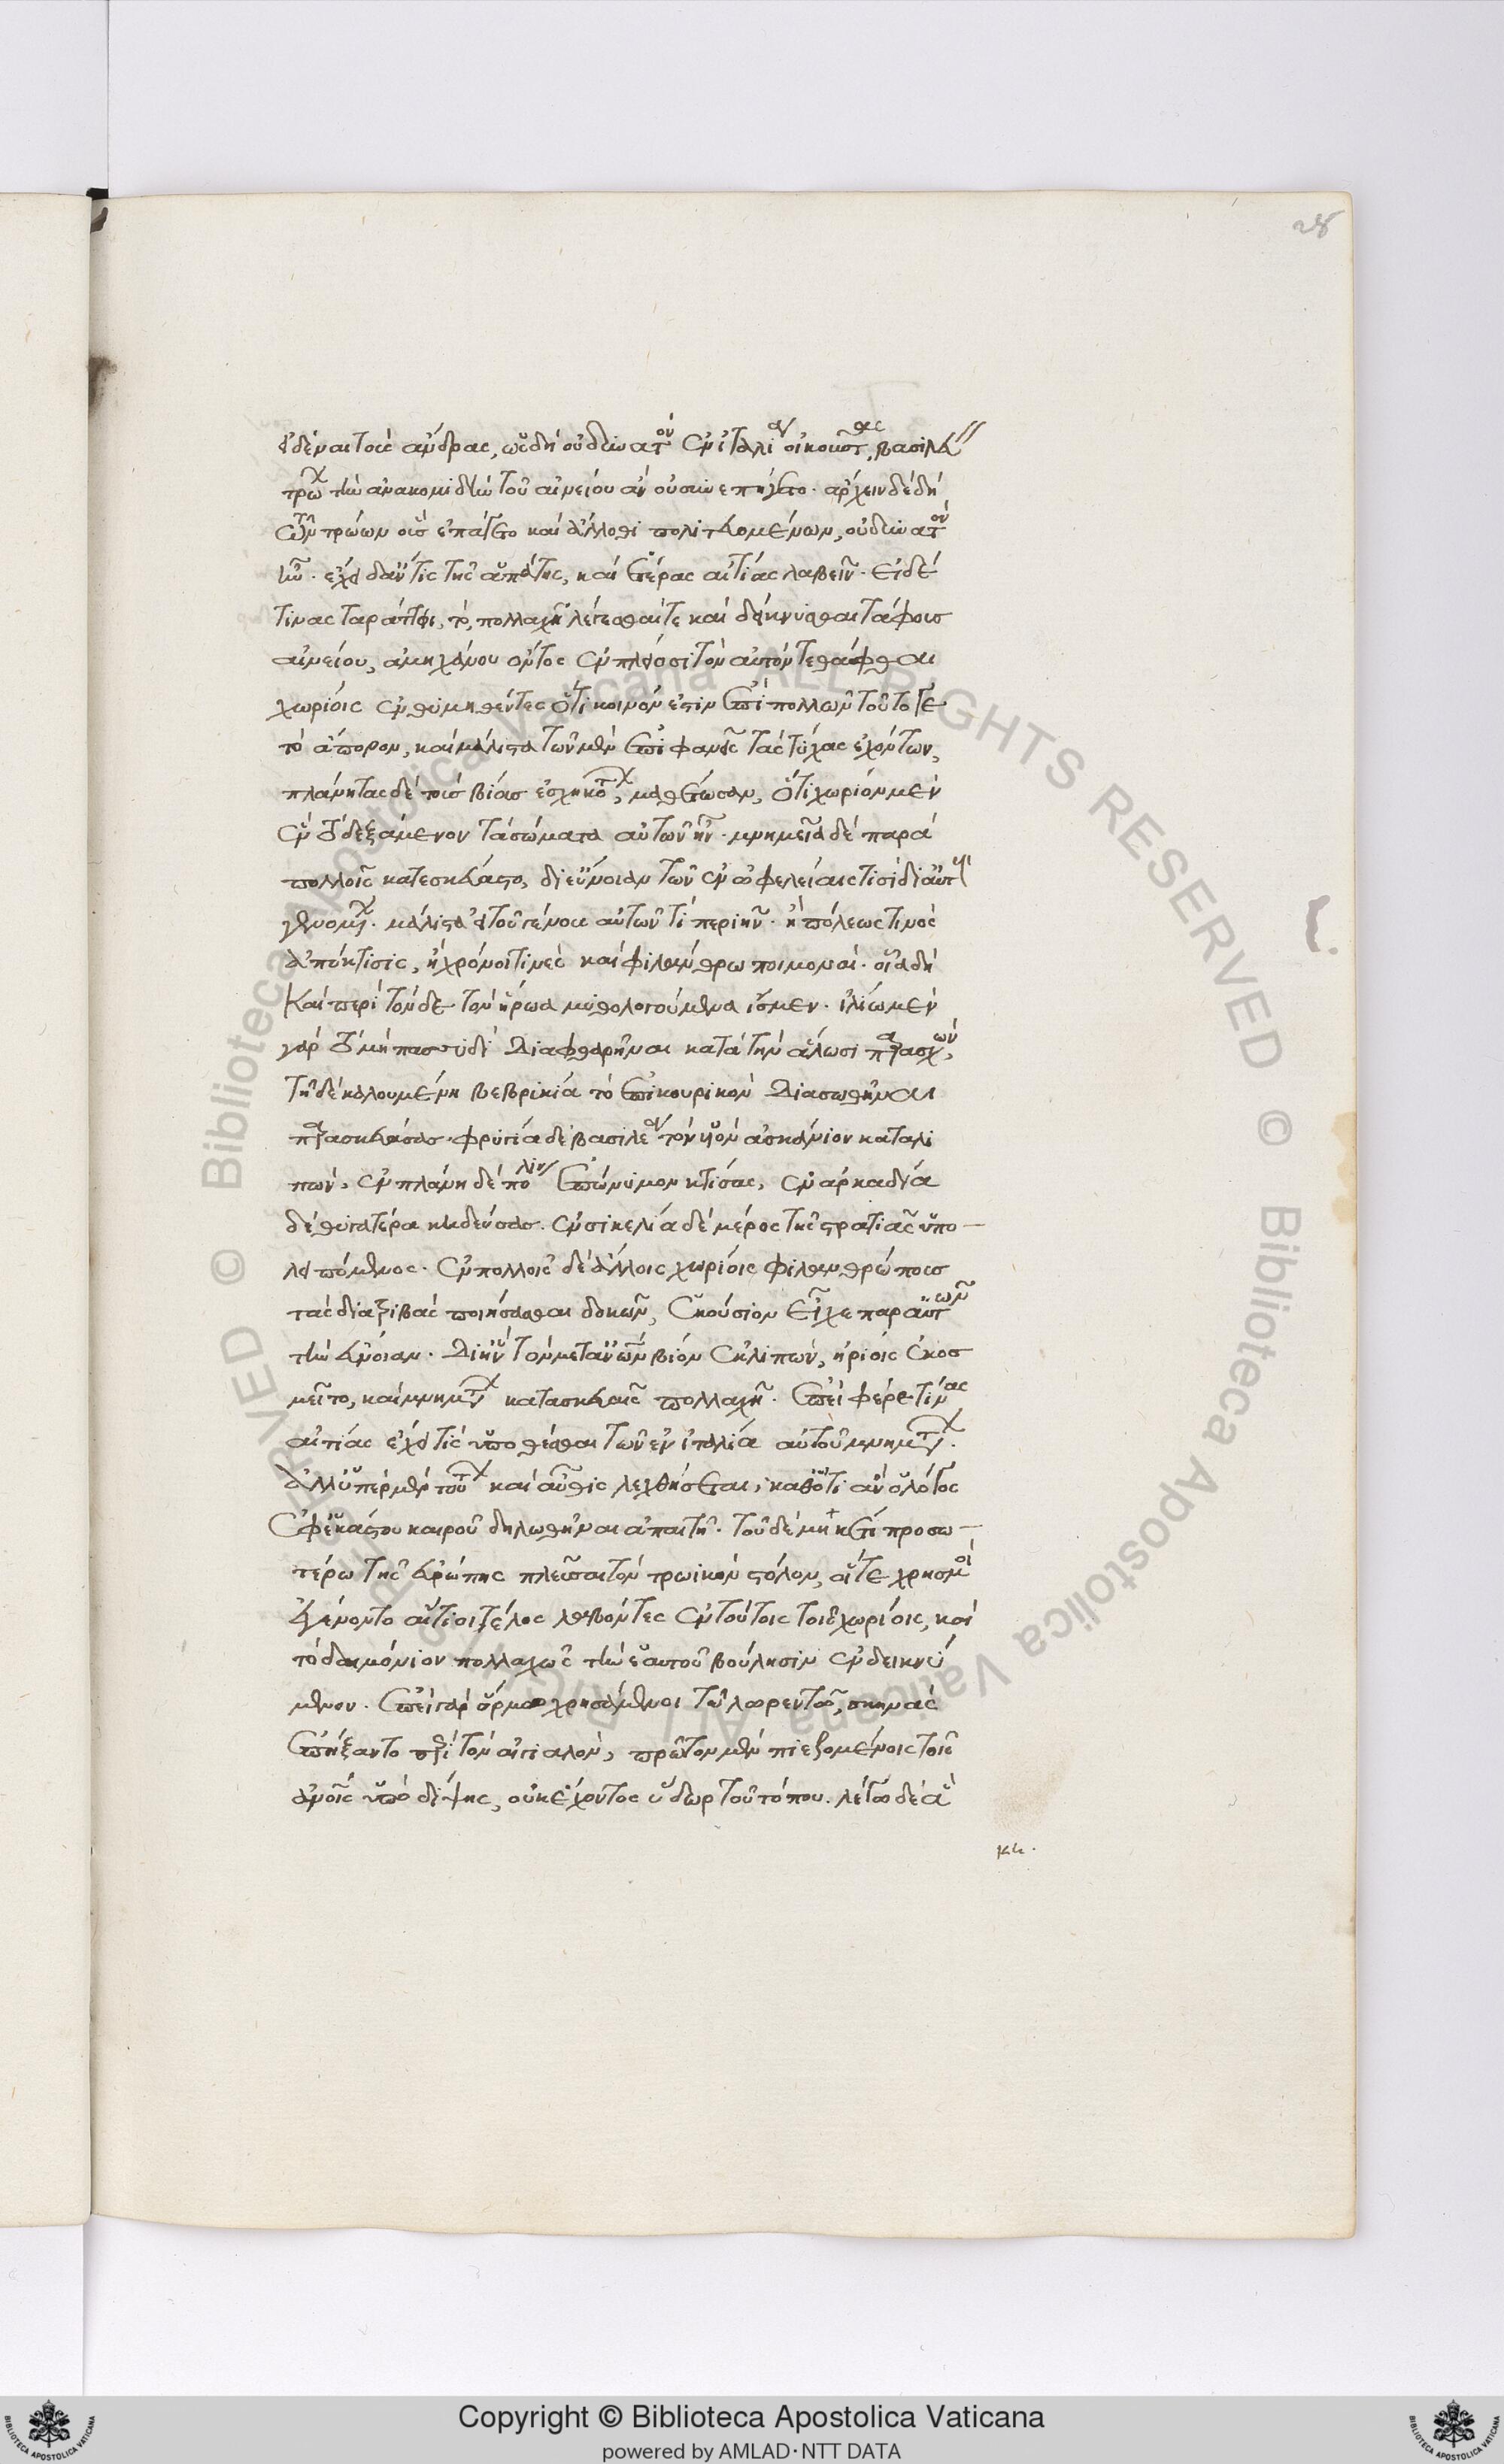 28
εἰδέναι τοὺς ἄνδρας, ὡς δὴ οὐ δυνατὸν ἐν ἰταλίαν οἰκοῦντας, βασιλεύειν
τρώων τὴν ἀνακομιδὴν τοῦ αἰνείου ἀνούσων ἐπήγετο. ἄρχειν δὲ δὴ
τῶν τρώων οὓς ἐπάγετο καὶ ἄλλοθι πολιτευομένων, οὐ δυνατὸν
ἦν. ἔχοι δ' ἄν τις τῆς ἀπάτης, καὶ ἑτέρας αἰτίας λαβεῖν. εἰ δέ
τινας ταράττει, τὸ, πολλαχῆ λέγεσθαί τε καὶ δείκνυσθαι τάφους
αἰνείου, ἀμηχάνου ὄντος ἐν πλείοσι τὸν αὐτὸν τεθάφθαι
χωρίοις ἐνθυμηθέντες ὅτι κοινόν ἐστιν ἐπὶ πολλῶν τοῦτό γε
τὸ ἄπορον, καὶ μάλιστα τῶν μὲν ἐπιφανεῖς τὰς τύχας ἐχόντων,
πλάνητας δὲ τοὺς βίους ἐσχηκότων, μαθέτωσαν, ὅτι χωρίον μὲν
ἓν τὸ δεξάμενον τὰ σώματα αὐτῶν ἦν. μνημεῖα δὲ παρὰ
πολλοῖς κατεσκεύαστο, δι' εὔνοιαν τῶν ἐν ὠφελείαις τισὶ δι' αὐτοὺς
γενομένων. μάλιστα εἰ τοῦ γένους αὐτῶν τι περιῆν. ἢ πόλεώς τινος
ἀπόκτισις, ἢ χρόνοι τινὲς καὶ φιλάνθρωποι μοναί. οἷα δὴ
καὶ περὶ τόνδε τὸν ἥρωα μυθολογούμενα ἴσμεν. ἰλίω μὲν
γὰρ τὸ μὴ πασσυδὶ διαφθαρῆναι κατὰ τὴν ἅλωσι παρασχών,
τῆ δὲ καλουμένη βεβρικία τὸ ἐπικουρικὸν διασωθῆναι
παρασκευάσας. φρυγία δὲ βασιλέα τὸν υἱὸν ἀσκάνιον καταλι
πών, ἐν πλάνη δὲ πόλιν ἐπώνυμον κτίσας, ἐν ἀρκαδία
δὲ θυγατέρα κηδεύσας. ἐν σικελία δὲ μέρος τῆς στρατιᾶς ὑπο
λειπόμενος. ἐν πολλοῖς δὲ ἄλλοις χωρίοις φιλανθρώπους
τὰς διατριβὰς ποιήσασθαι δοκῶν, ἑκούσιον εἶχε παρ' αὐτῶν
τὴν εὔνοιαν. δι' ἣν τὸν μετ' ἀνθρώπων βίον ἐκλιπών, ἡρίοις ἐκοσ
μεῖτο, καὶ μνημάτων κατασκευαῖς πολλαχῆ. ἐπεὶ φέρε τίνας
αἰτίας ἔχοι τις ὑποθέσθαι τῶν ἐν ἰταλία αὐτοῦ μνημάτων.
ἀλλ' ὑπὲρ μὲν τούτων καὶ αὖθις λεχθήσεται, καθότι ἂν ὁ λόγος
ἐφ' ἑκάστου καιροῦ δηλωθῆναι ἀπαιτῆ. τοῦ δὲ μηκέτι προσω
τέρω τῆς εὐρώπης πλεῦσαι τὸν τρωικὸν στόλον, οἵ τε χρησμοὶ
ἐγένοντο αἴτιοι τέλος λαβόντες ἐν τούτοις τοῖς χωρίοις, καὶ
τὸ δαιμόνιον πολλαχῶς τὴν ἑαυτοῦ βούλησιν ἐνδεικνύ
μενον. ἐπεὶ γὰρ ὅρμω χρησάμενοι τῶ λωρεντῶ, σκηνὰς
ἐπήξαντο περὶ τὸν αἰγιαλόν, πρῶτον μὲν πιεζομένοις τοῖς
ἀνοῖς ὑπὸ δίψης, οὐκ ἔχοντος ὕδωρ τοῦ τόπου. λέγω δὲ ἃ
κη.
Copyright © Biblioteca Apostolica Vaticana
powered by AMLAD·NTT DATA
© Biblioteca Apostolica Vaticana ALL RIGHTS RESERVED